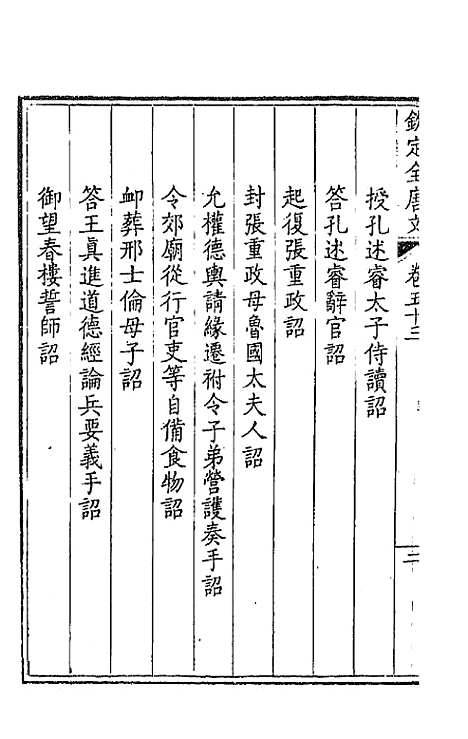 欽定全唐文 卷五十三 二
授孔述睿太子侍讀詔
答孔述睿辭官詔
起復張重政詔
封張重政母魯國太夫人詔
允權德輿請緣遷祔令子弟營護奏手詔
令郊廟從行官吏等自備食物詔
䘏葬邢士倫母子詔
答王真進道德經論兵要義手詔
御望春樓誓師詔